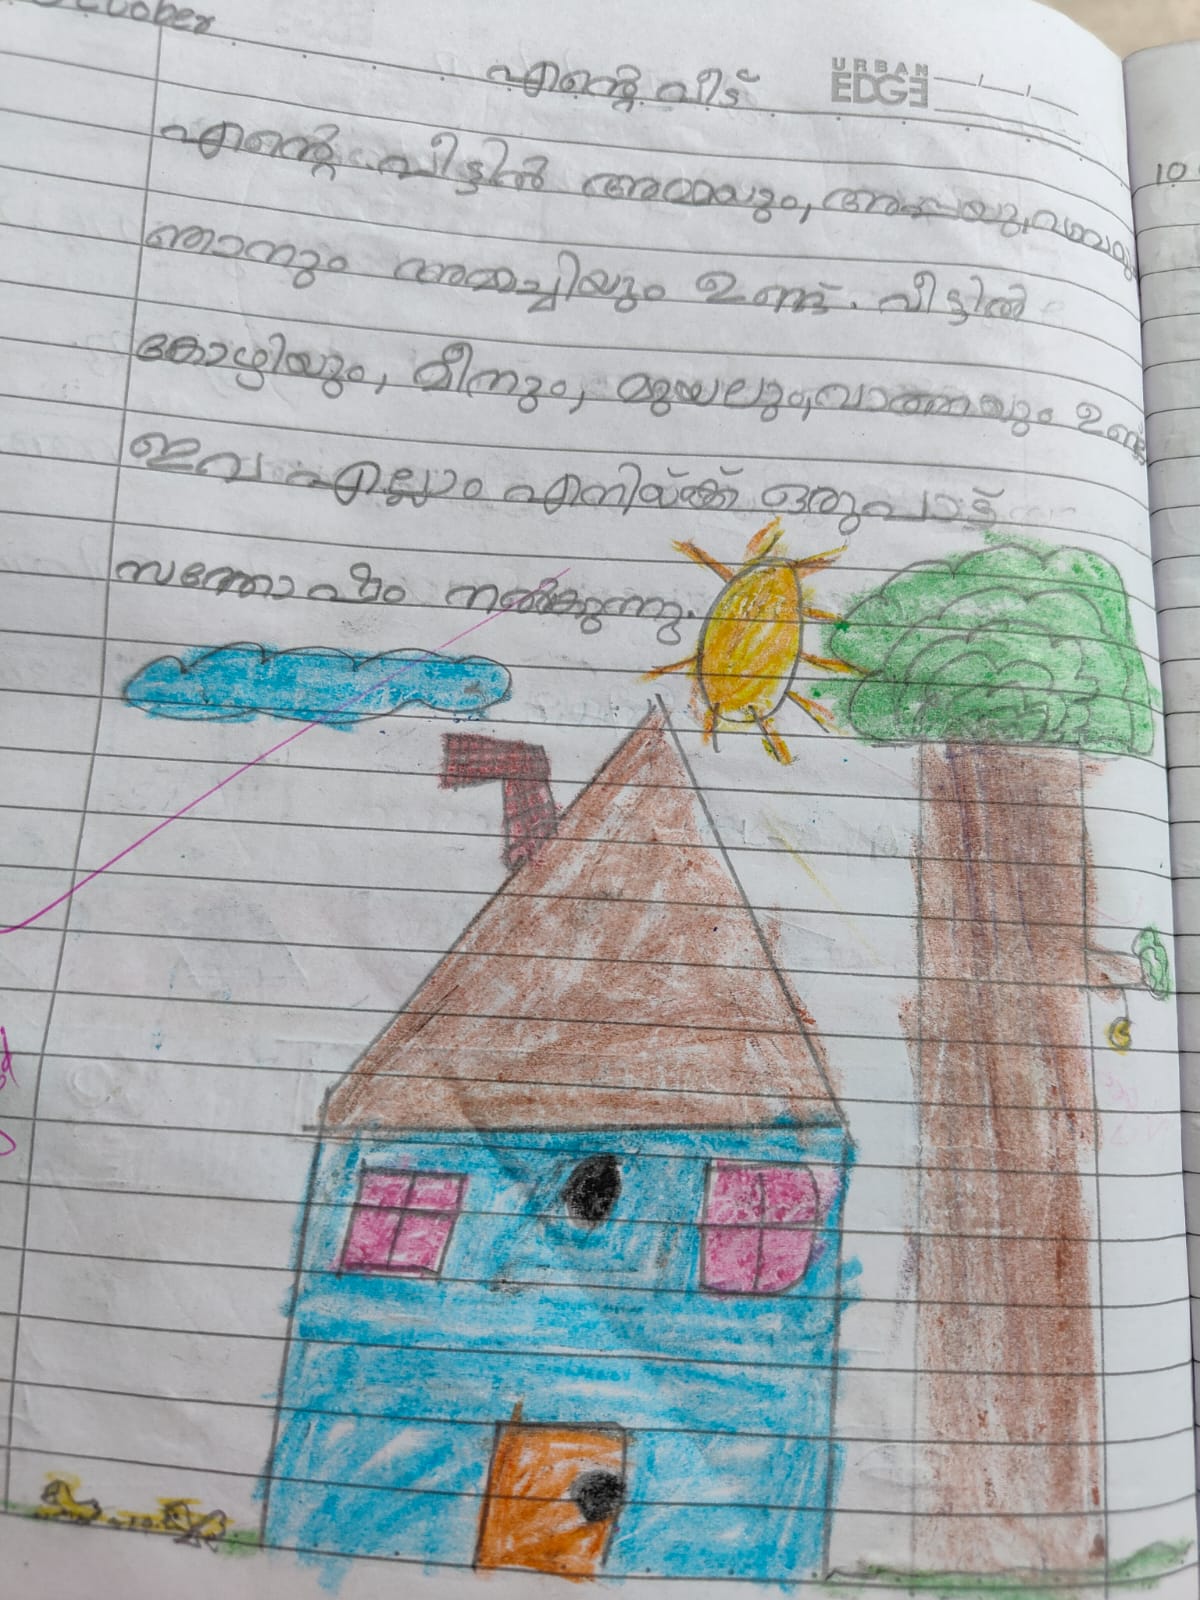 October
എന്റെ വീട്
URBAN
EDGE
എന്റെ വീട്ടിൽ അമ്മയും, അപ്പയും,
ഞാനും അമ്മച്ചിയും ഉണ്ട്. വീട്ടിൽ
കോഴിയും, മീനും, മുയലും, വാത്തയും ഉണ്ട്
ഇവ എല്ലാം എനിയ്ക്ക് ഒരുപാട്
സന്തോഷം നൽകുന്നു.
10